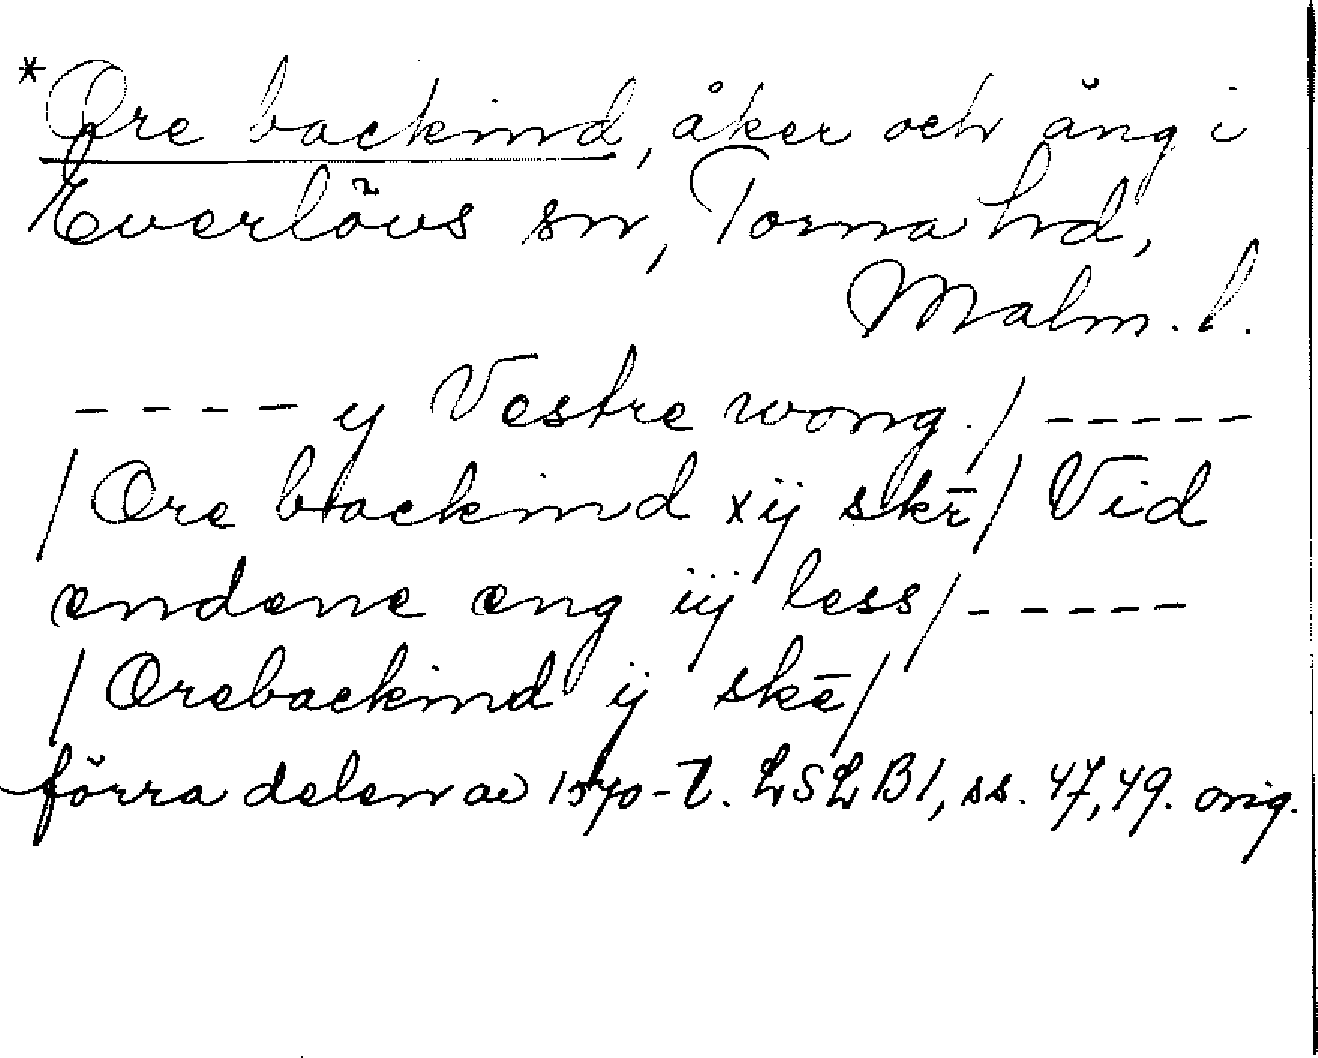 *Ore backind, åker och äng i
Everlövs sn, Torna hd,
Malm. l.
---- y Vestre wong./-----
/Ore backind xij skē/ Vid
endene eng iij less/-----
/Orebackind ij skē/
förra delen av 1570-t. LSLB1, ss. 47,49. orig.